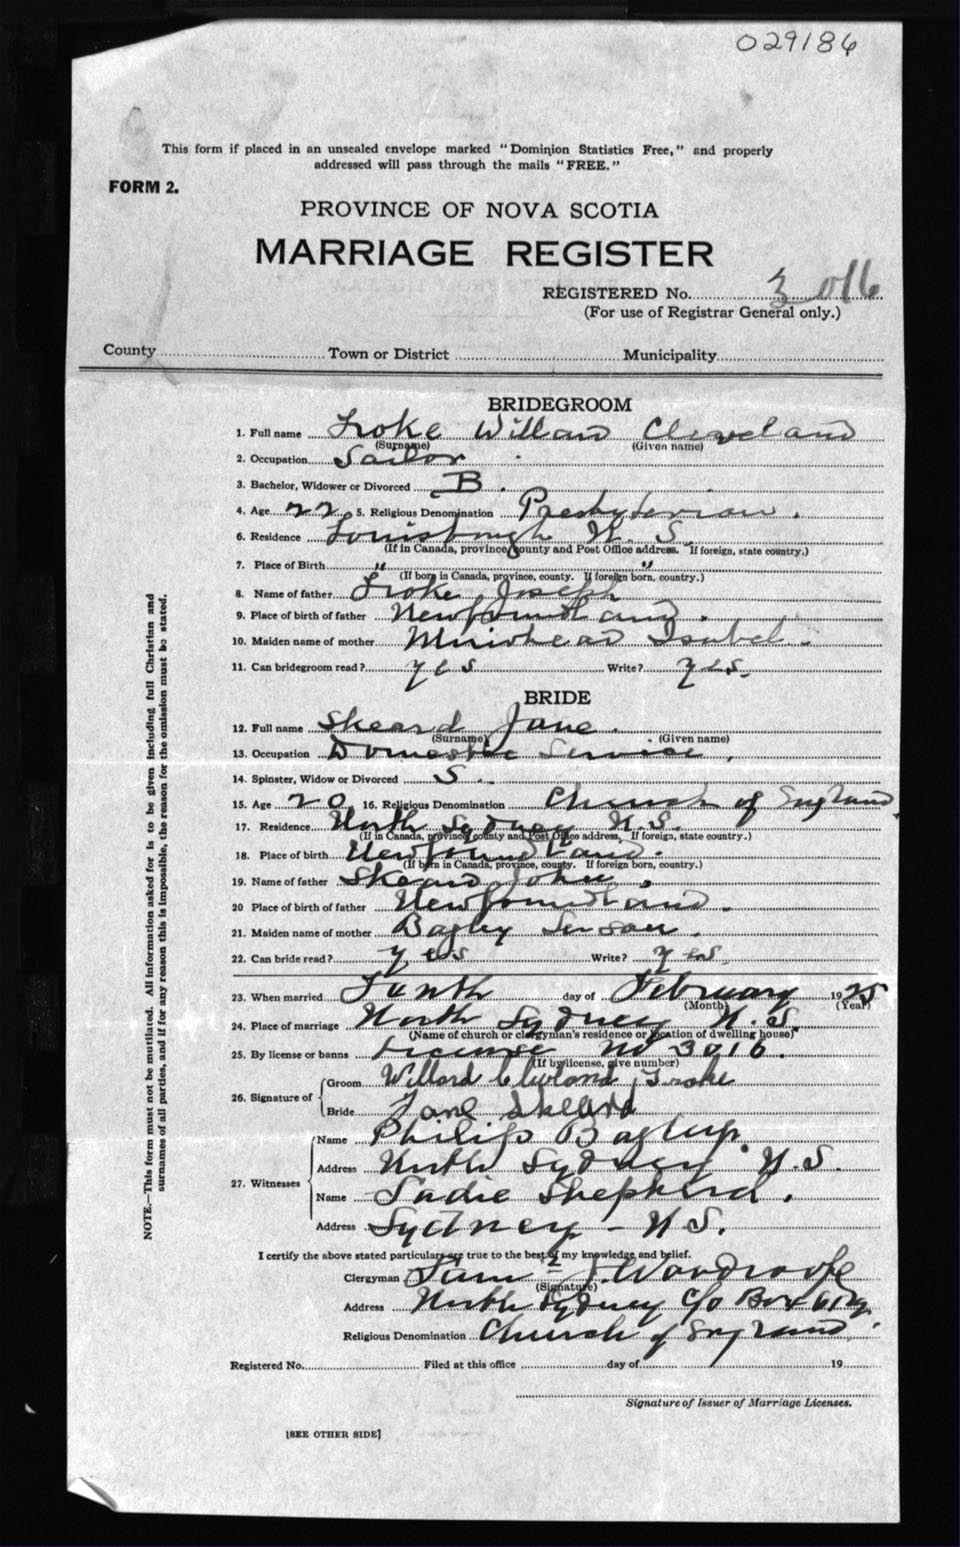 029186
This form if placed in an unsealed envelope marked "Dominion Statistics Free," and properly
addressed will pass through the mails "FREE."
FORM 2.
PROVINCE OF NOVA SCOTIA
MARRIAGE REGISTER
REGISTERED No. 3016
(For use of Registrar General only.)
County Town or District Municipality
BRIDEGROOM
1. Full name Troke Willard Cleveland
(Surname) (Given name)
2. Occupation Sailor
3. Bachelor, Widower or Divorced B.
4. Age 22 5. Religious Denomination Presbyterian.
6. Residence Louisburgh N. S.
(If in Canada, province, county and Post Office address. If foreign, state country.)
7. Place of Birth " "
(If born in Canada, province, county. If foreign born, country.)
8. Name of father Troke Joseph
9. Place of birth of father Newfoundland.
10. Maiden name of mother Muirhead Isabel.
11. Can bridegroom read? yes Write? yes.
BRIDE
12. Full name Skeard Jane.
(Surname) (Given name)
13. Occupation Domestic Service.
14. Spinster, Widow or Divorced S.
15. Age 20 16. Religious Denomination Church of England.
17. Residence North Sydney N.S.
(If in Canada, province county and Post Office address, If foreign, state country.)
18. Place of birth Newfoundland.
(If born in Canada, province, county. If foreign born, country.)
19. Name of father Skeard John.
20 Place of birth of father Newfoundland.
21. Maiden name of mother Bagley Susan.
22. Can bride read? yes Write? yes.
23. When married Tenth day of February 1925
(Month) (Year)
24. Place of marriage North Sydney N.S.
(Name of church or clergyman's residence or location of dwelling house)
25. By license or banns License No 3016.
(If by license, give number)
26. Signature of Groom Willard Cleveland Troke
Bride Jane Skeard
27. Witnesses Name Philip
Address North Sydney N.S.
Name Sadie Shepherd.
Address Sydney - N S.
I certify the above stated particulars are true to the best of my knowledge and belief.
Clergyman Sam J. Wardroofe
(Signature)
Address North Sydney c/o Box
Religious Denomination Church of England.
Registered No. Filed at this office day of 19
Signature of Issuer of Marriage Licenses.
[SEE OTHER SIDE]
NOTE.—This form must not be mutilated. All information asked for is to be given including full Christian and
surnames of all parties, and if for any reason this is impossible, the reason for the omission must be stated.